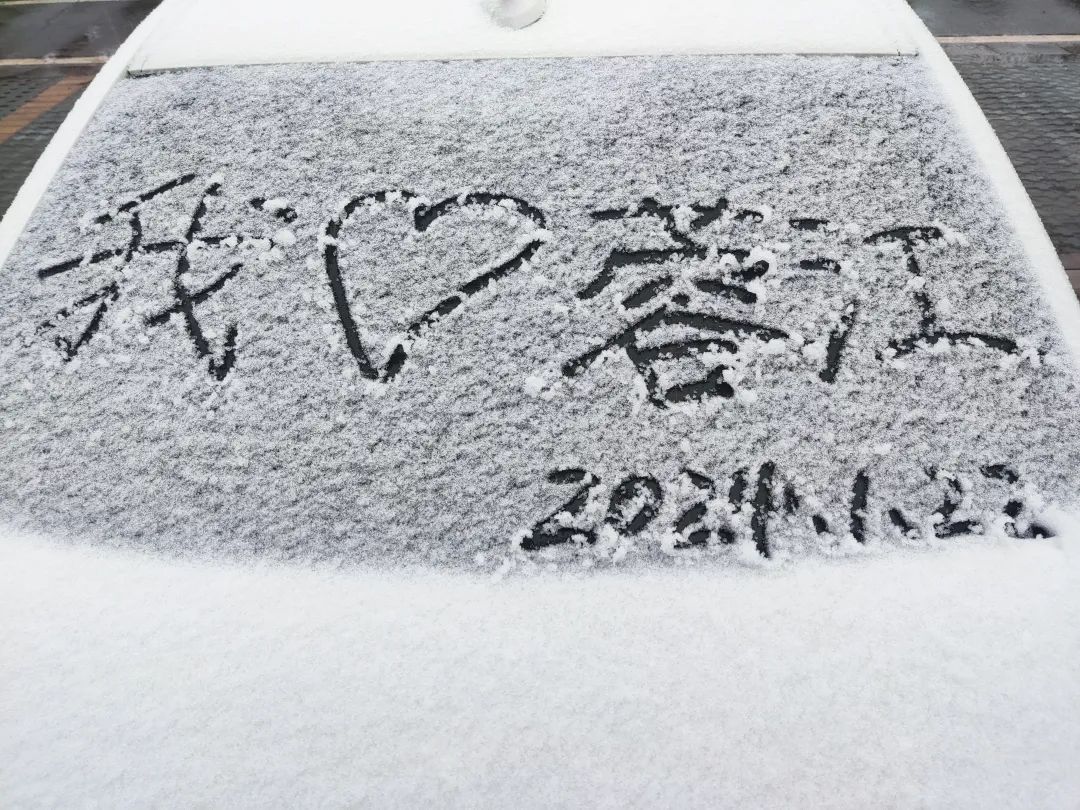 我♡蓉江
2024.1.22